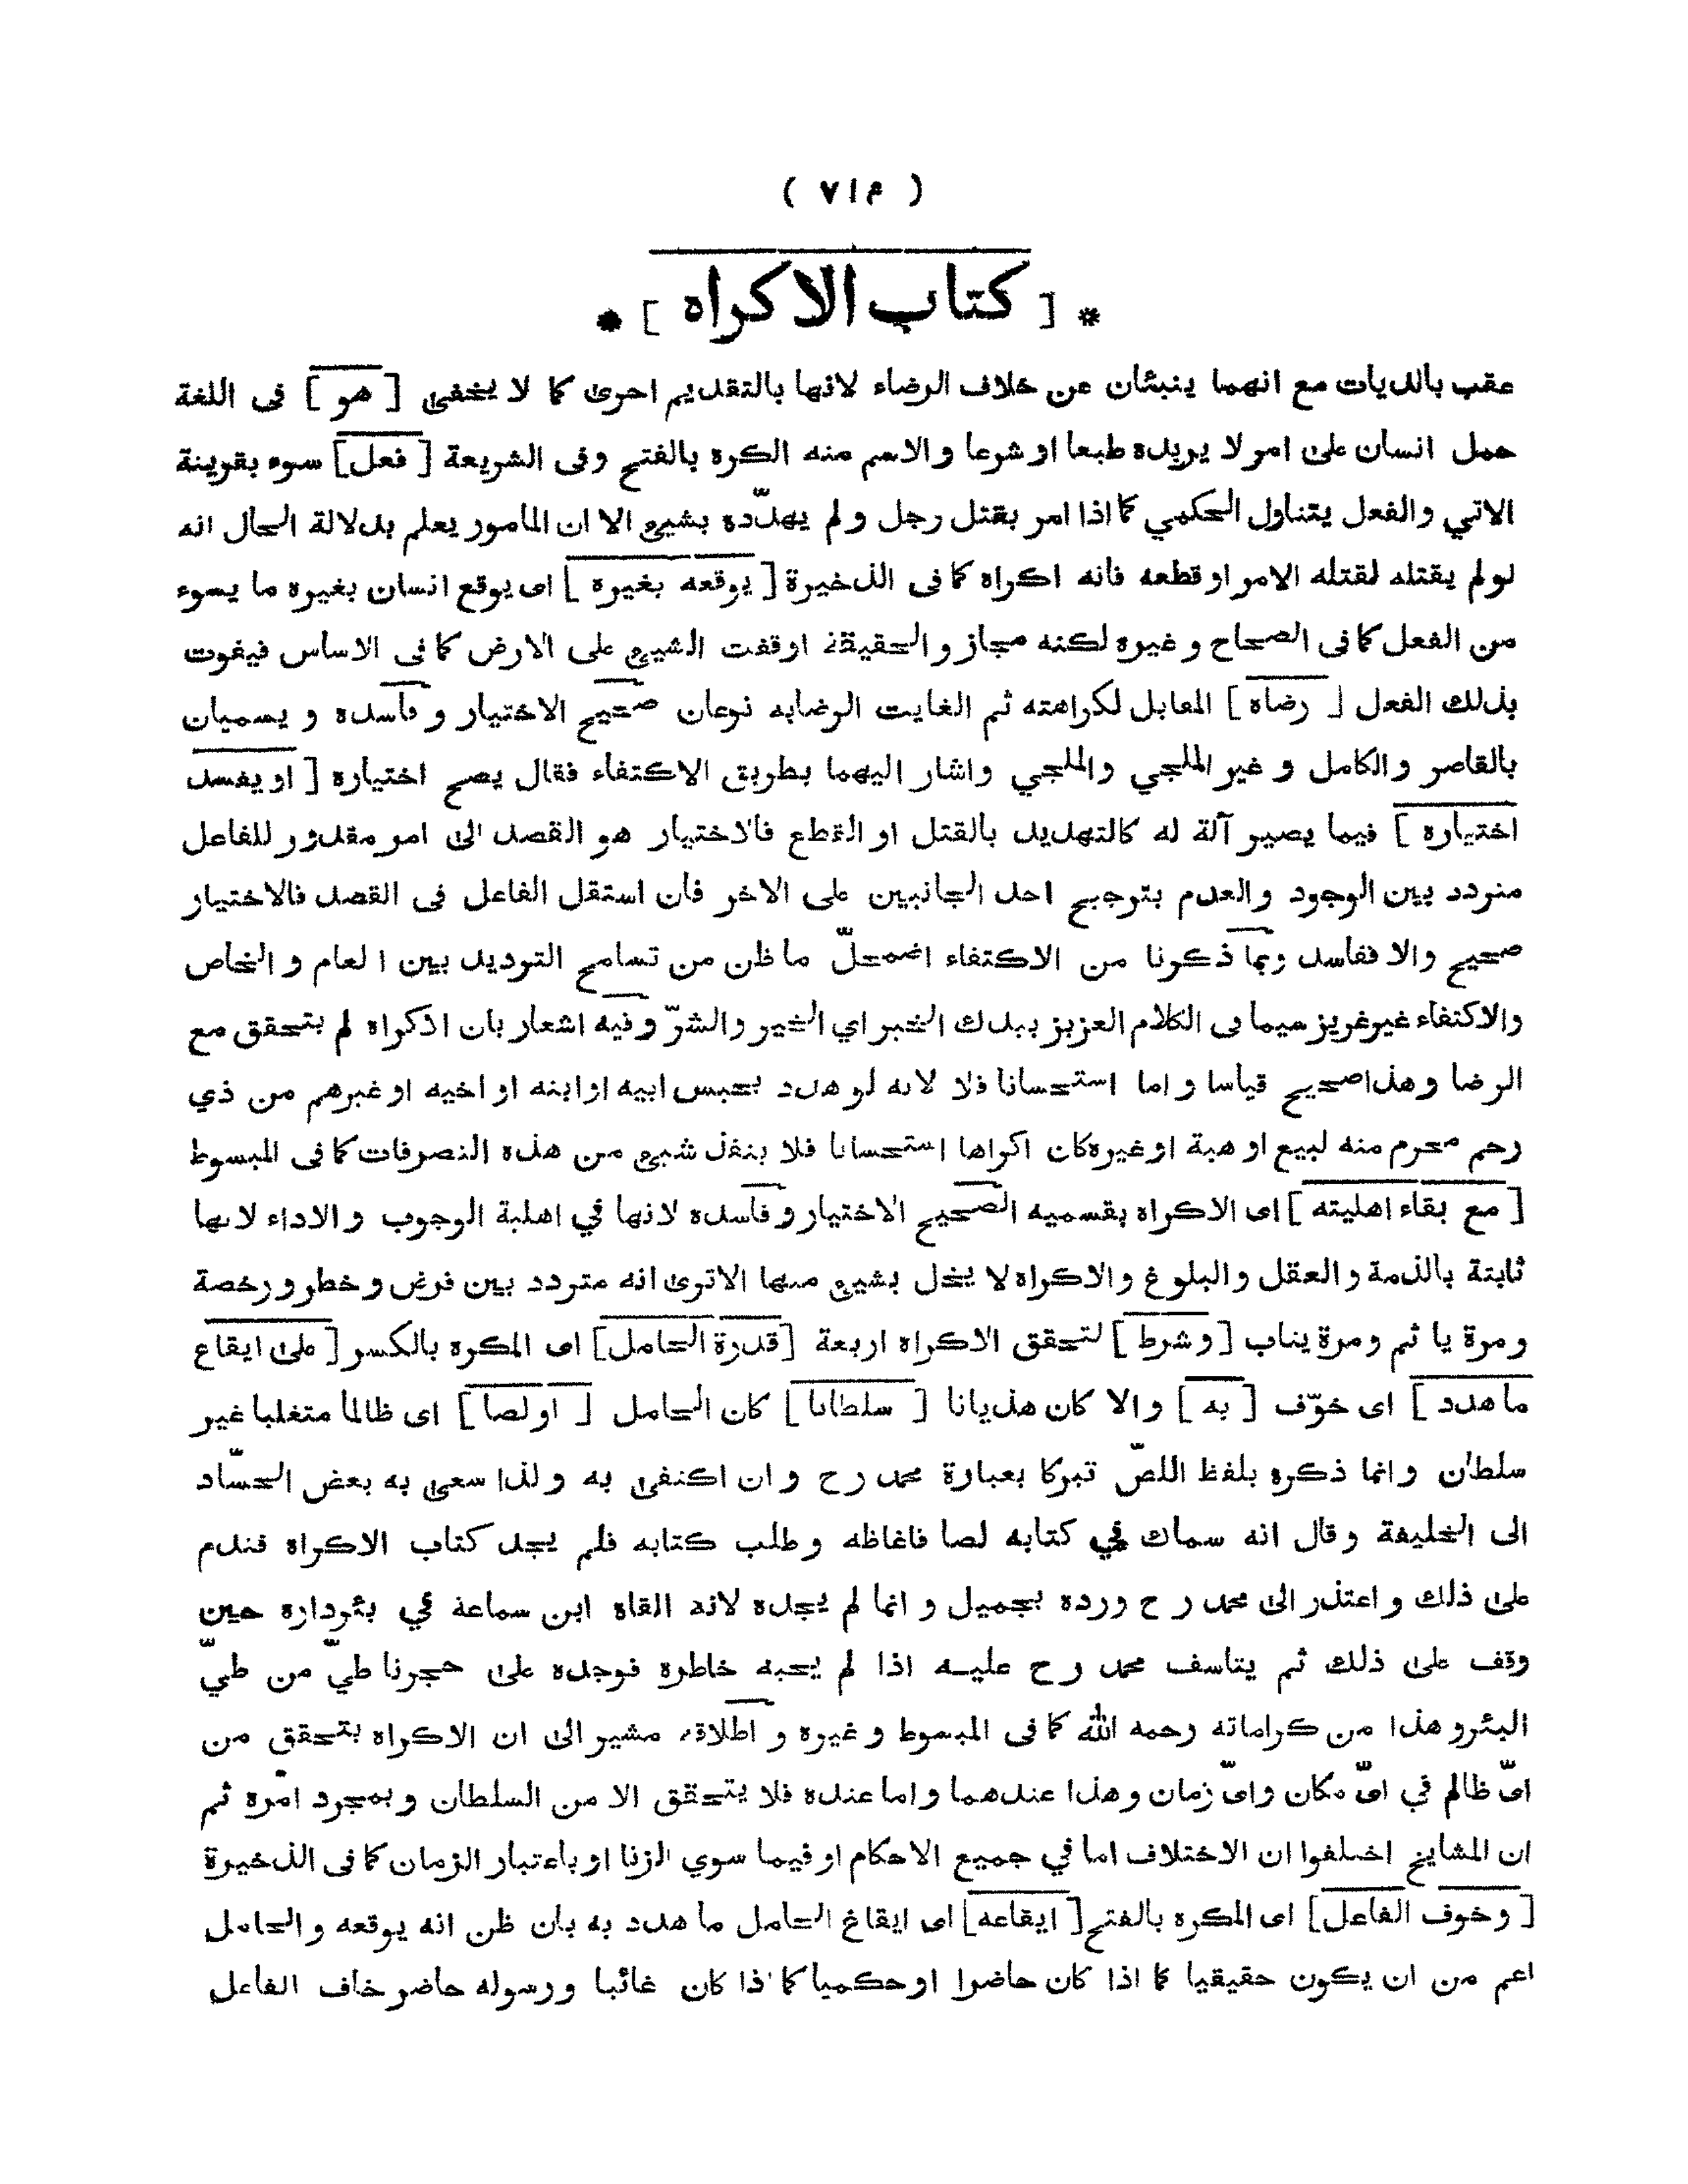 ( ٧١٤ )
* [ كتاب الاكراه ] *
عقب بالديات مع انهما ينبئان عن خلاف الرضاء لانها بالتقديم احرى كما لا يخفى [ هو ] فى اللغة
حمل انسان على امر لا يريده طبعا او شرعا و الاسم منه الكره بالفتح وفى الشريعة [ فعل ] سوء بقرينة
الاتي والفعل يتناول الحكمي كما اذا امر بقتل رجل و لم يهدّده بشيئ الا ان المامور يعلم بدلالة الحال انه
لولم يقتله لقتله الامر او قطعه فانه اكراه كما فى الذخيرة [ يوقعه بغيره ] اى يوقع انسان بغيره ما يسوء
من الفعل كما فى الصحاح و غيره لكنه مجاز و الحقيقة اوقفت الشيئ على الارض كما فى الاساس فيفوت
بذلك الفعل [ رضاه ] المقابل لكراهته ثم الفايت الرضابه نوعان صحيح الاختيار و فاسده و يسميان
بالقاصر و الكامل و غير الملجي والملجي واشار اليهما بطريق الاكتفاء فقال يصح اختياره [ او يفسد
اختياره ] فيما يصير آلة له كالتهديد بالقتل او القطع فالاختيار هو القصد الى امر مقدور للفاعل
متردد بين الوجود والعدم بترجيح احد الجانبين على الاخر فان استقل الفاعل فى القصد فالاختيار
صحيح والا ففاسد وبما ذكرنا من الاكتفاء اضمحلّ ما ظن من تسامح الترديد بين العام و الخاص
والاكتفاء غير غريز سيما فى الكلام العزيز بيدك الخير اي الخير والشرّ و فيه اشعار بان الاكراه لم يتحقق مع
الرضا و هذا صحيح قياسا و اما استحسانا فلا لانه لو هدد بحبس ابيه او ابنه او اخيه او غيرهم من ذي
رحم محرم منه لبيع او هبة او غيره كان اكراها استحسانا فلا ينفذ شيئ من هذه التصرفات كما فى المبسوط
[ مع بقاء اهليته ] اى الاكراه بقسميه الصحيح الاختيار و فاسده لانها في اهلية الوجوب و الاداء لانها
ثابتة بالذمة و العقل و البلوغ و الاكراه لا يخل بشيئ منها الاترى انه متردد بين فرض و خطر و رخصة
ومرة يا ثم ومرة يثاب [ و شرط ] لتحقق الاكراه اربعة [ قدرة الحامل ] اى المكره بالكسر [ على ايقاع
ما هدد ] اى خوّف [ به ] و الا كان هذيانا [ سلطانا ] كان الحامل [ او لصا ] اى ظالما متغلبا غير
سلطان و انما ذكره بلفظ اللصّ تبركا بعبارة محمد رح و ان اكتفى به و لذا سعى به بعض الحسّاد
الى الخليفة و قال انه سماك في كتابه لصا فاغاظه و طلب كتابه فلم يجد كتاب الاكراه فندم
على ذلك و اعتذر الى محمد رح ورده بجميل و انما لم يجده لانه القاه ابن سماعة في بئرداره حين
وقف على ذلك ثم يتاسف محمد رح عليه اذا لم يجبه خاطره فوجده على حجرنا طيّ من طيّ
البئر و هذا من كراماته رحمه الله كما فى المبسوط و غيره و اطلاقه مشير الى ان الاكراه يتحقق من
اىّ ظالم في اىّ مكان واىّ زمان و هذا عندهما و اما عنده فلا يتحقق الا من السلطان و بمجرد امره ثم
ان المشايخ اختلفوا ان الاختلاف اما في جميع الاحكام او فيما سوي الزنا او باعتبار الزمان كما فى الذخيرة
[ و خوف الفاعل ] اى المكره بالفتح [ ايقاعه ] اى ايقاع الحامل ما هدد به بان ظن انه يوقعه و الحامل
اعم من ان يكون حقيقيا كما اذا كان حاضرا او حكميا كما اذا كان غائبا و رسوله حاضر خاف الفاعل